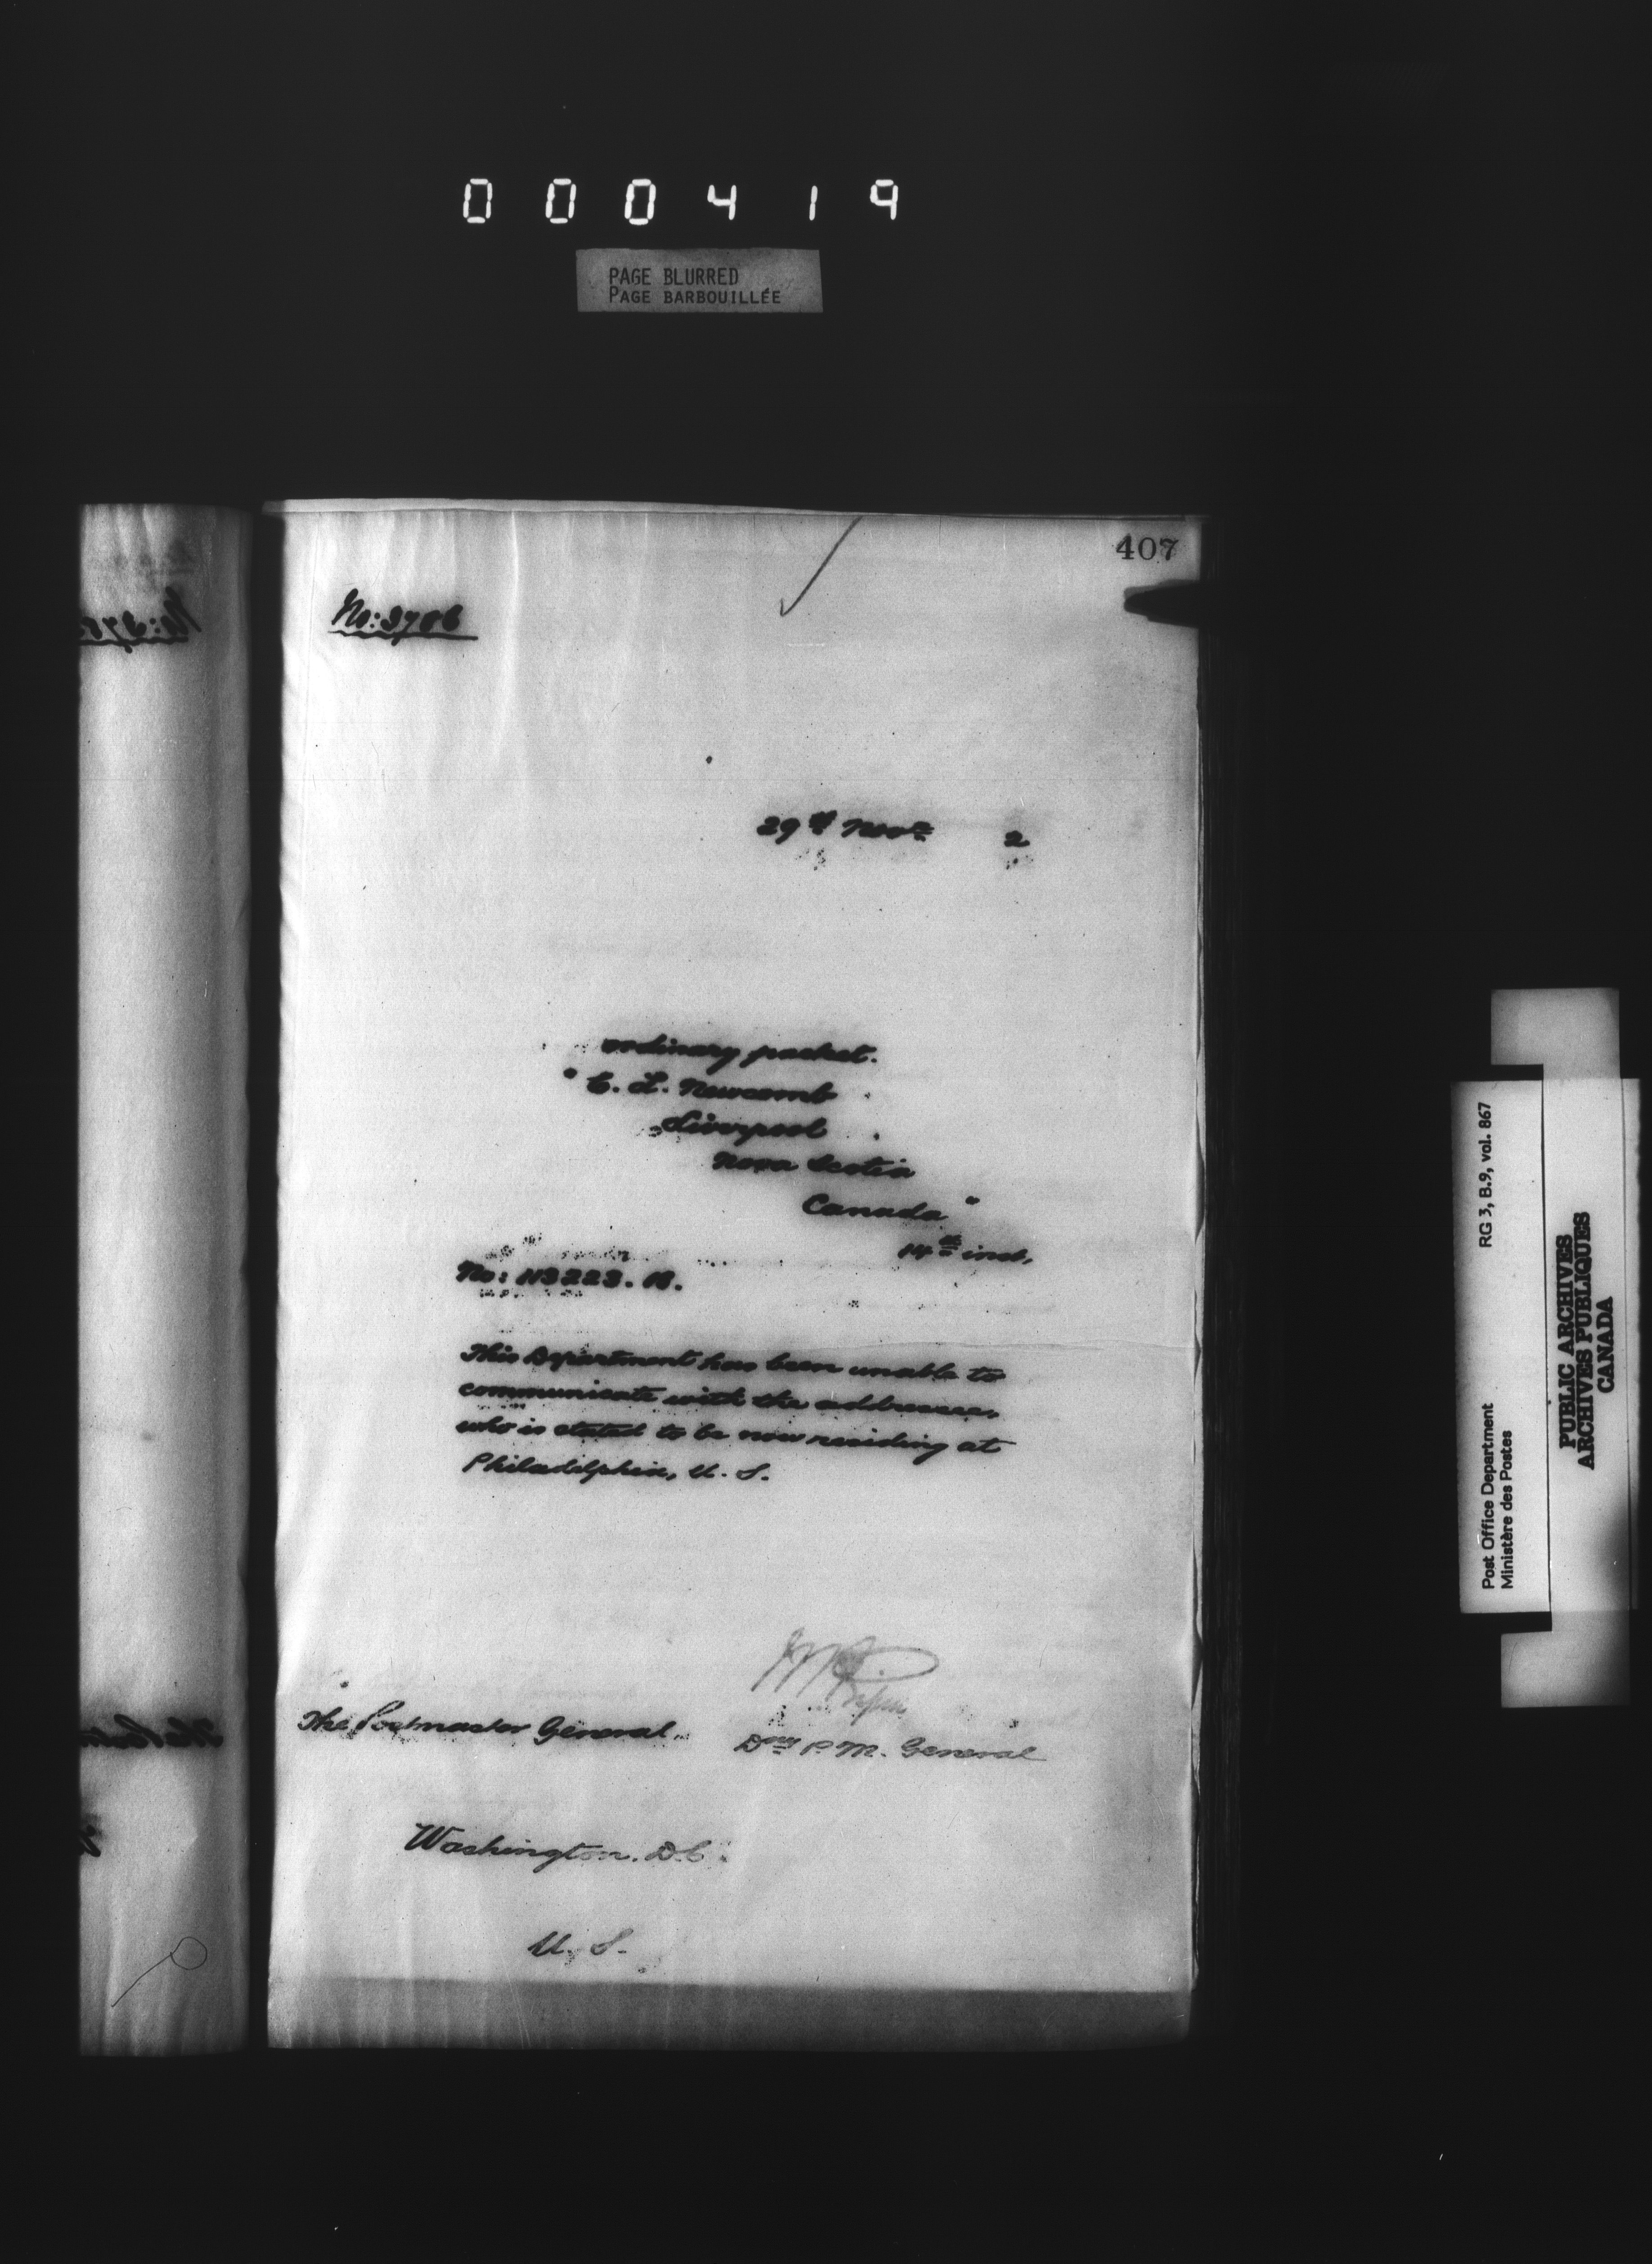 000419
PAGE BLURRED
PAGE BARBOUILLÉE
407
No: 3786
29th Novr 2
ordinary packet.
" C. L. Newcomb
Liverpool
Nova Scotia
Canada "
14th inst,
No: 113223. B.
This Department has been unable to
communicate with the addressee,
who is stated to be now residing at
Philadelphia, U. S.
The Postmaster General.
Dpy P. M. General
Washington. D.C.
U. S.
Post Office Department RG 3, B.9, vol. 867
Ministère des Postes
PUBLIC ARCHIVES
ARCHIVES PUBLIQUES
CANADA